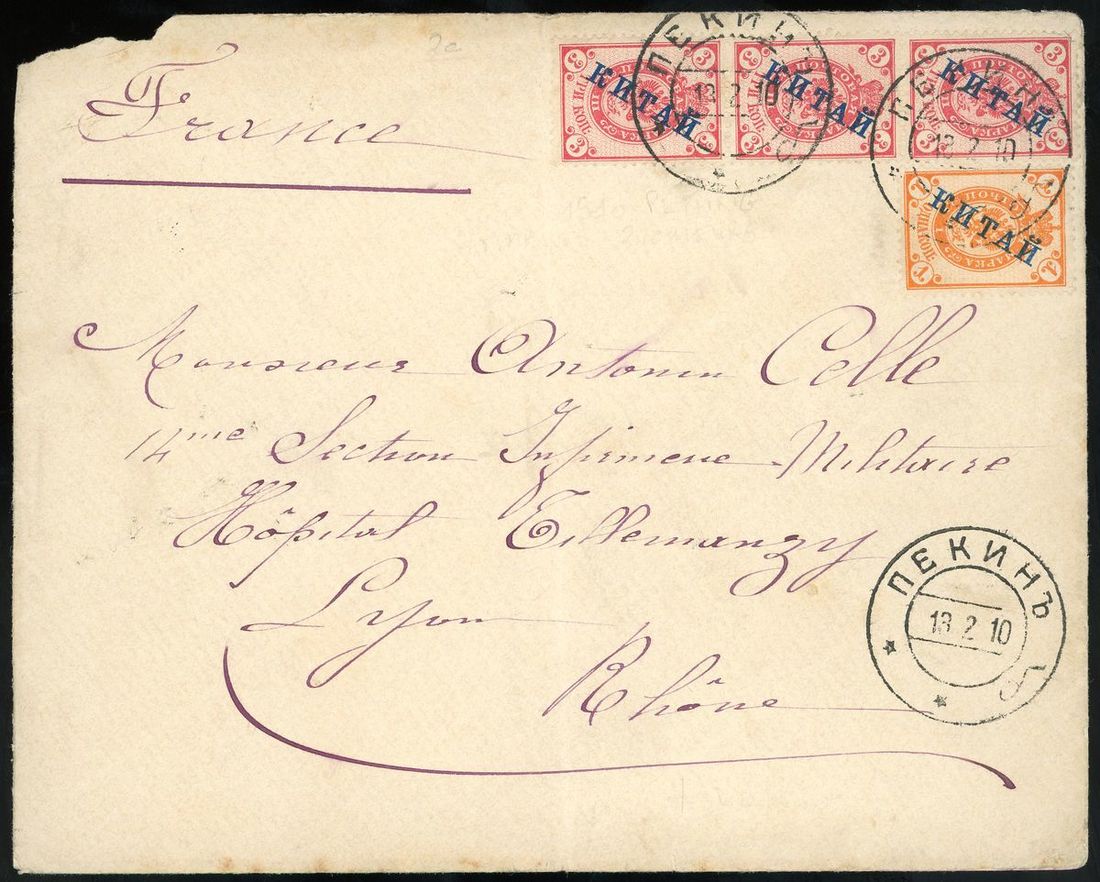 France
КИТАЙ
КИТАЙ
КИТАЙ
КИТАЙ
3 3 3 3 3 3
ТРИ КОП.
1 1 1
ПЕКИНЪ
13 2 10
ПЕКИНЪ
13 2 10
Monsieur Antonin Celle
14me Section Infirmerie Militaire
Hôpital Villemanzy
Lyon
Rhône
ПЕКИНЪ
13 2 10